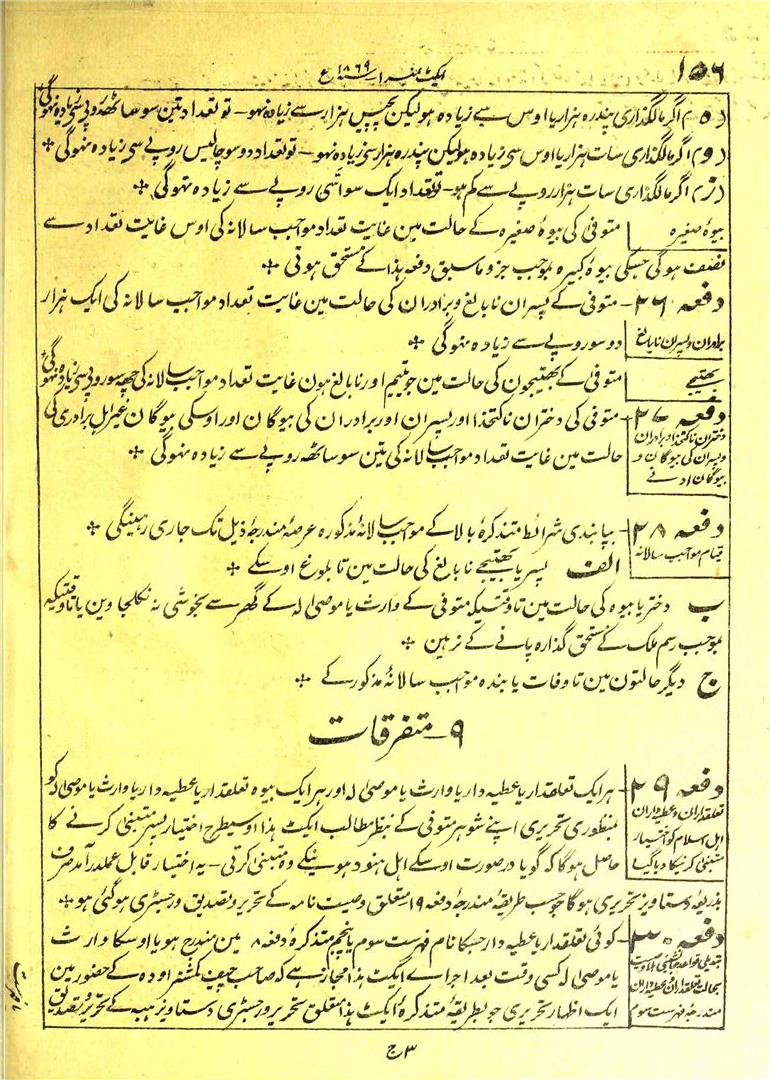 ۱۵۶
ایکٹ نمبر ۱ سنہ ۱۸۶۹ع
(ہ) اگر مالگذاری پندرہ ہزار یا اوس سے زیادہ ہو لیکن پچیس ہزار سے زیادہ نہو – تو تعداد تین سو ساٹھ روپی سی زیادہ نہوگی
(و) اگر مالگذاری سات ہزار یا اوس سی زیادہ ہو لیکن پندرہ ہزار سی زیادہ نہو – تو تعداد دو سو چالیس روپے سی زیادہ نہوگی ÷
(ز) اگر مالگذاری سات ہزار روپے سے کم ہو – تو تعداد ایک سو اسّی روپے سے زیادہ نہوگی ÷
بیوۂ صغیرہ
متوفی کی بیوۂ صغیرہ کے حالت مین غایت تعداد مواجب سالانہ کی اوس غایت تعداد سے
نصف ہوگی جسکی بیوۂ کبیرہ بموجب جزو ماسبق دفعہ ہذا کے مستحق ہوتی ÷
دفعہ ۲۶ – متوفی کے پسران نابالغ و برادران کی حالت مین غایت تعداد مواجب سالانہ کی ایک ہزار
برادران و پسران نابالغ
دو سو روپے سے زیادہ نہوگی ÷
بھتیجے
متوفی کے بھتیجون کی حالت مین جو یتیم اور نابالغ ہون غایت تعداد مواجب سالانہ کی چھہ سو روپی سی زیادہ نہوگی
دفعہ ۲۷ – متوفی کی دختران ناکتخدا اور پسران اور برادران کی بیوگان اور اوسکی بیوگان غیر اہل برادری کی
دختران ناکتخدا و برادران
و پسران کی بیوگان و
بیوگان ادنے
حالت مین غایت تعداد مواجب سالانہ کی تین سو ساٹھہ روپے سے زیادہ نہوگی ÷
دفعہ ۲۸ – بپابندی شرائط متذکرۂ بالا کے مواجب سالانۂ مذکورہ عرصۂ مندرجۂ ذیل تک جاری رہینگی ÷
قیام مواجب سالانہ
الف پسر یا بھتیجے نابالغ کی حالت مین تا بلوغ اوسکے ÷
ب دختر یا بیوہ کی حالت مین تاوقتیکہ متوفی کے وارث یا موصیٰ لہ کے گھر سے بخوشی نہ نکلجاوین یا تاوقتیکہ
بموجب رسم ملک کے مستحق گذارہ پانے کے نرہین ÷
ج دیگر حالتون مین تا وفات یابندہ مواجب سالانۂ مذکور کے ÷
۹ – متفرقات
دفعہ ۲۹ – ہر ایک تعلقدار یا عطیہ دار یا وارث یا موصیٰ لہ اور ہر ایک بیوہ تعلقدار یا عطیہ دار یا وارث یا موصیٰ لہ کو
تعلقداران و عطیہ داران
اہل اسلام کو اختیار
متبنیٰ کرنیکا دیا گیا
بمنظوری تحریری اپنے شوہر متوفی کے بنظر مطالب ایکٹ ہذا اوسیطرح اختیار پسر متبنیٰ کرنے کا
حاصل ہوگا کہ گویا درصورت اوسکے اہل ہنود ہونیکے وہ متبنیٰ کرتی – یہ اختیار قابل عملدرآمد صرف
بذریعۂ دستاویز تحریری ہوگا جو حسب طریقۂ مندرجۂ دفعہ ۱۹ متعلق وصیت نامہ کے تحریر و تصدیق و رجسٹری ہوگئی ہو ÷
دفعہ ۳۰ – کوئی تعلقدار یا عطیہ دار جسکا نام فہرست سوم یا پنجم متذکرۂ دفعہ ۸ مین مندرج ہو یا اوسکا وارث
بحالت تعلقداران عطیہ داران
مندرجہ فہرست سوم
یا موصیٰ لہ کسی وقت بعد اجراے ایکٹ ہذا مجاز ہے کہ صاحب چیف کمشنر اودہ کے حضور مین
ایک اظہار تحریری جو بطریقۂ متذکرۂ ایکٹ ہذا متعلق تحریر و رجسٹری دستاویز ہبہ کے تحریر و تصدیق
۳ ج